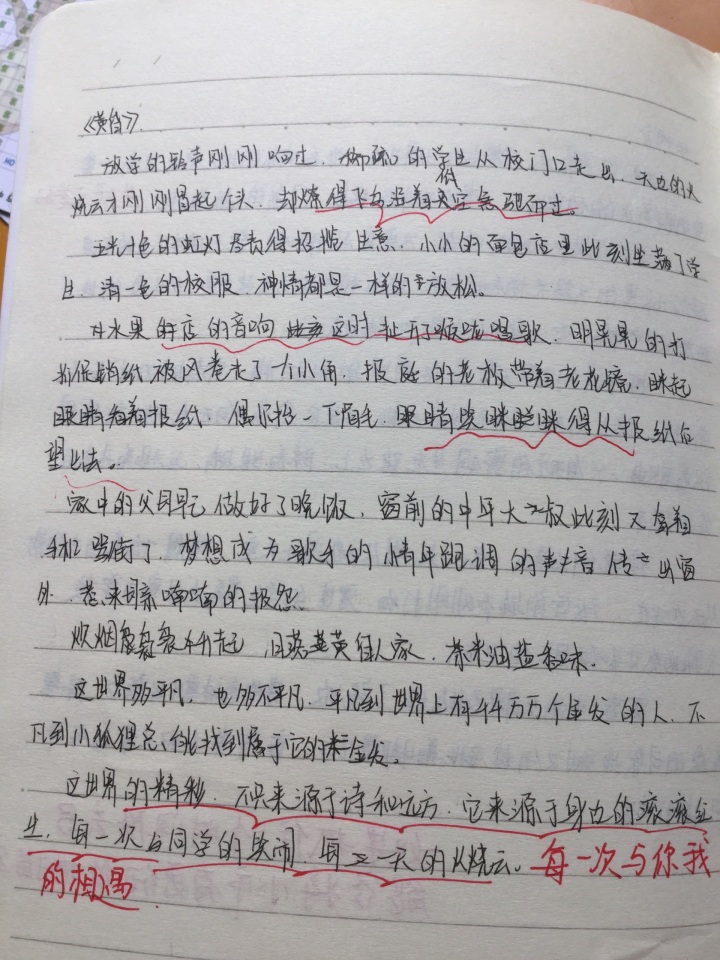 《黄昏》
放学的铃声刚刚响过，的学生从校门口走出，天边的火
烧云才刚刚冒起个头，却燎得飞鸟沿着天空低
五光十色的虹灯尽责得招揽生意，小小的面包店里此刻坐满了学
生，清一色的校服，神情都是一样的放松。
水果店的音响这时扯开了喉咙唱歌，明晃晃的打
折促销纸被风卷走了一小角，报庭的老板带着老花镜，眯起
眼睛看着报纸，偶尔抬一下眉毛，眼睛笑眯眯得从报纸后
望出去。
家中的父母早已做好了晚饭，窗前的中年大叔此刻又拿着
手机骂街了，梦想成为歌手的青年跑调的声音传出窗
外，惹来喃喃的报怨。
炊烟袅袅升起，日落黄昏人家，茶米油盐香味。
这世界多平凡，也多不平凡，平凡到世界上有千千万万个金发的人，不
凡到小狐狸总能找到属于它的金发。
这世界的精彩，不只来源于诗和远方，它来源于身边的滚滚众
生，每一次与同学的笑闹，每一天的火烧云。每一次与你我
的相遇